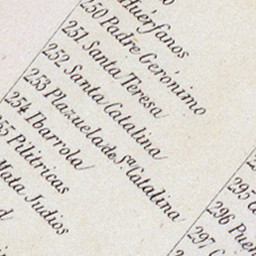 Huérfanos
250 Padre Gerónimo
251 Santa Teresa
252 Santa Catalina
253 Plazuela de Sta. Catalina
254 Ibarrola
Pilitricas
Mata Judios
295
296 Puen
297